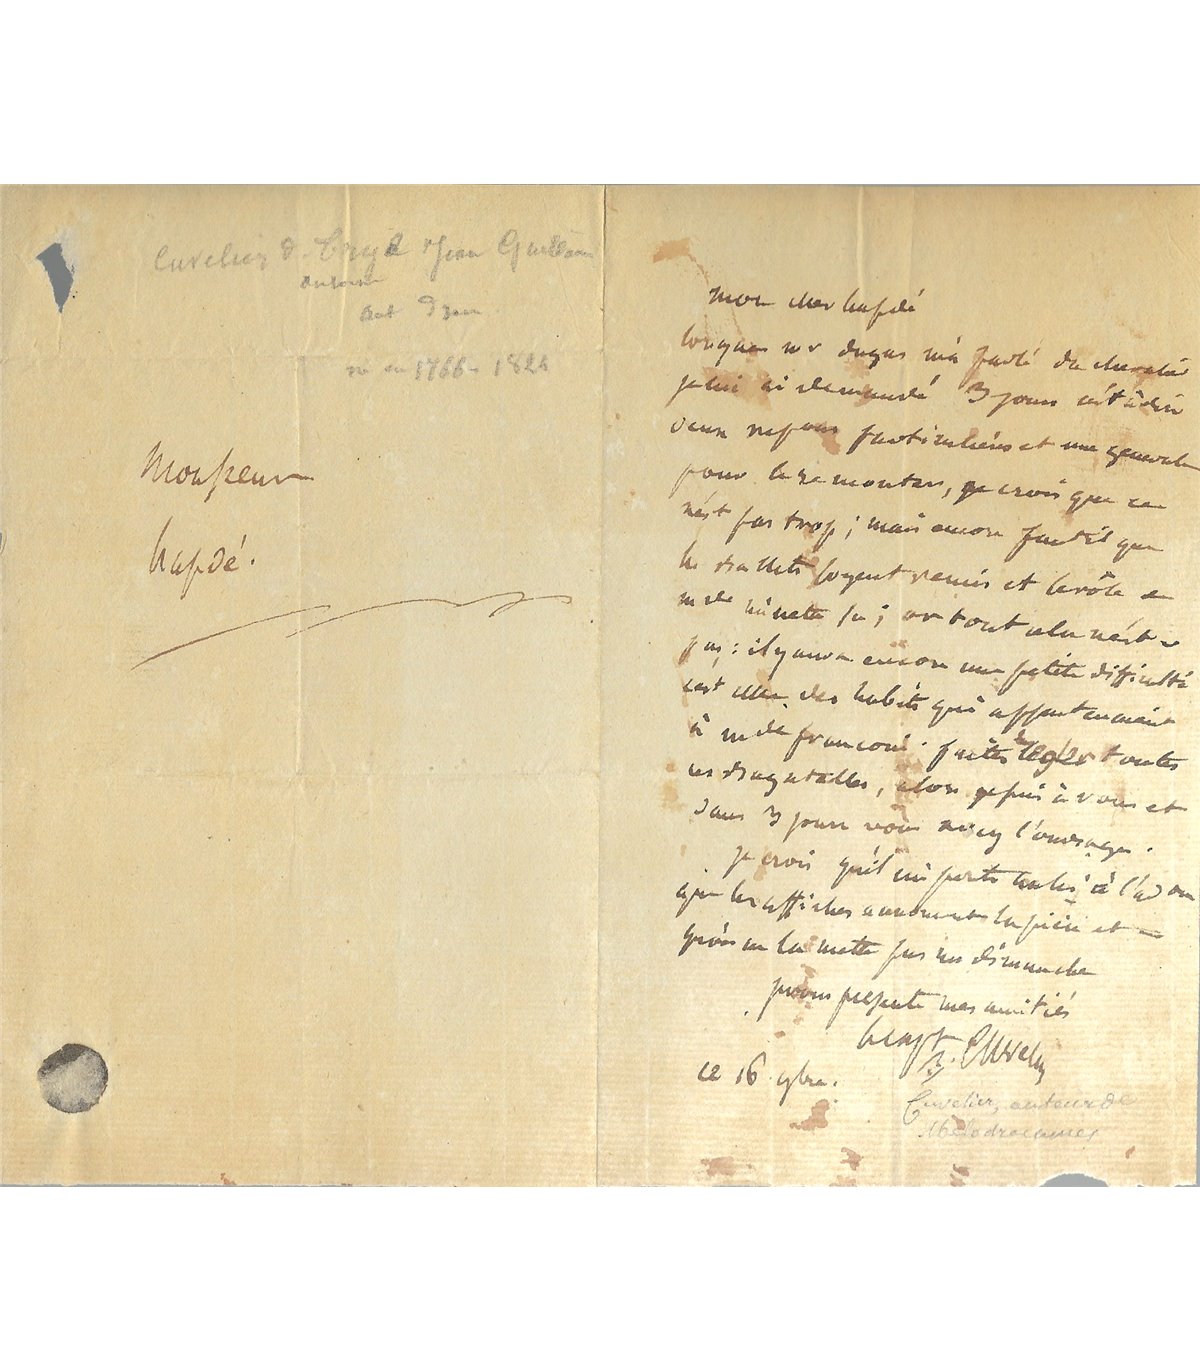 Cuvelier d Trye Jean Guillaume
né en 1766 - 1824
Monsieur
hapdé.
mon cher hapdé
lorsque mr dugas m'a parlé du chevalier
je lui ai demandé 3 jours c'est à dire
deux particulières et une generale
pour le remonter, je crois que ce
n'est pas trop; mais encore faut il que
les ballets soyent remis et le rôle de
mde su; or tout cela n'est
pas: il y aura encore une petite difficulté
c'est celle des habits qui appartenaient
à mde franconi. faites regler toutes
ces bagatelles, alors je suis à vous et
dans 3 jours vous aurez l'ouvrage.
je crois qu'il importe à l'ad on
que les affiches annoncent la pièce et
qu'on ne la mette pas un dimanche
je vous presente mes amitiés
Cuvelier
ce 16 9bre.
Cuvelier, auteur de
Mélodrames